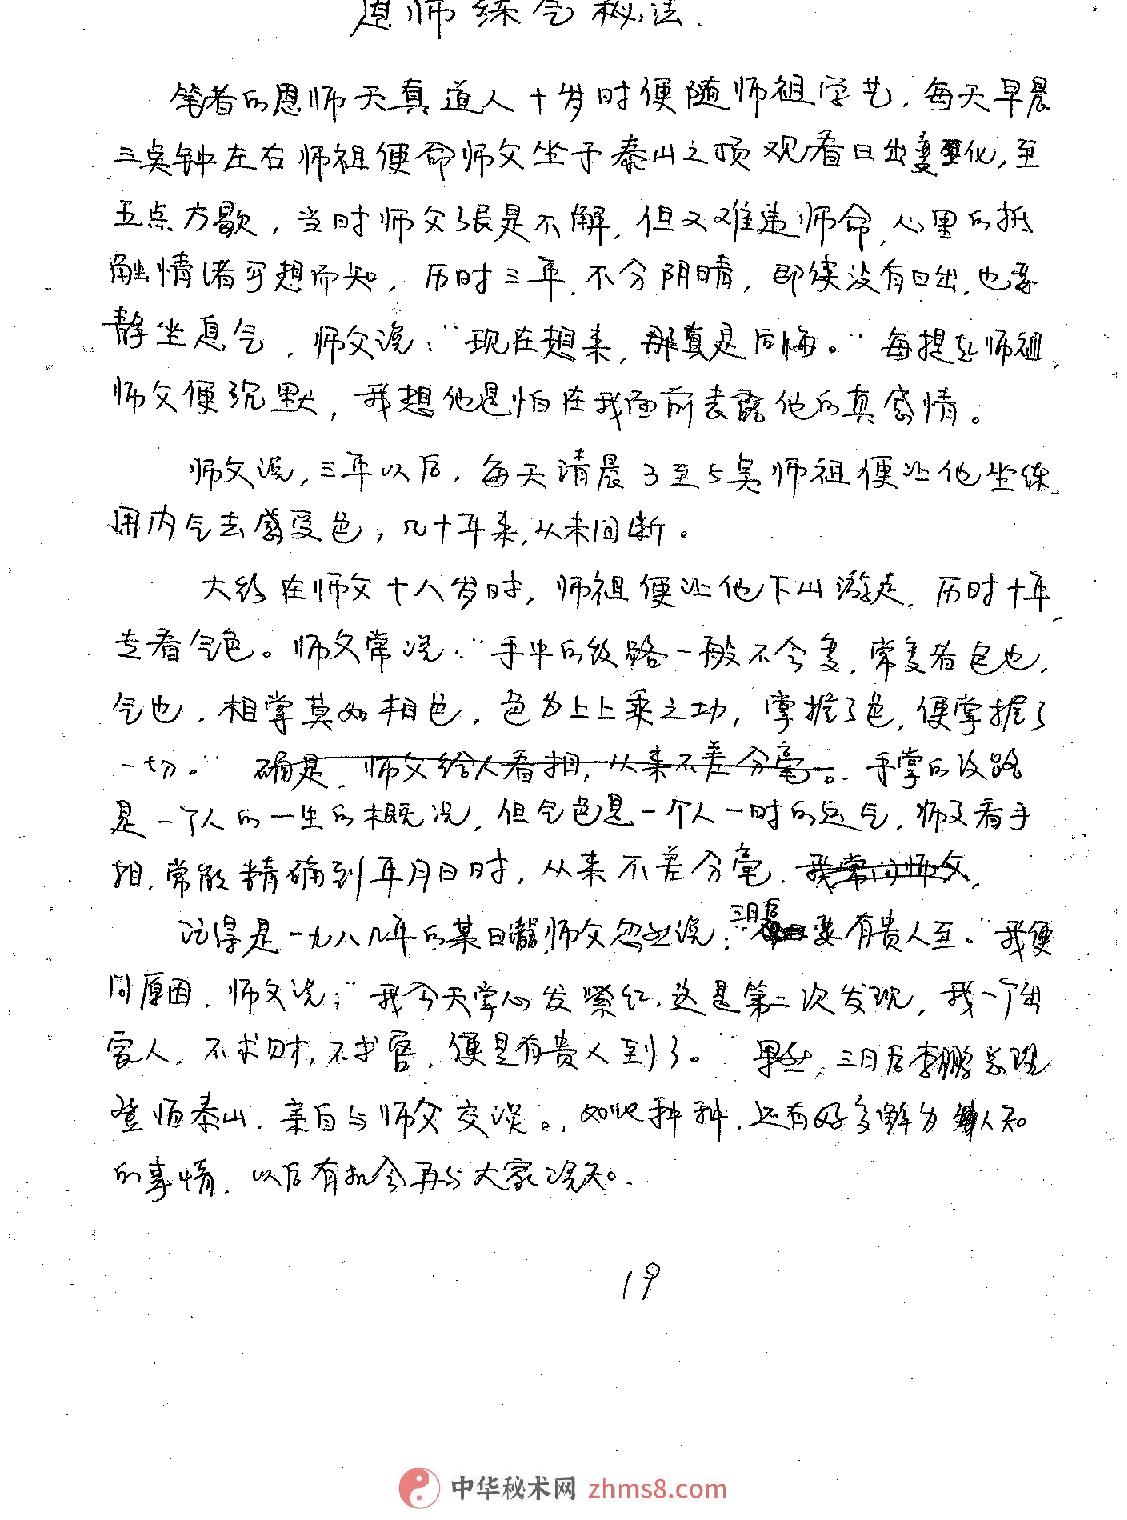 恩师练气秘法.
笔者的恩师天真道人十岁时便随师祖学艺,每天早晨
三点钟左右师祖便命师父坐于泰山之顶观看日出变化,至
五点方歇,当时师父很是不解,但又难违师命,心里的抵
触情绪可想而知,历时三年,不分阴晴,即使没有日出,也要
静坐息气,师父说:“现在想来,那真是后悔。”每提起师祖,
师父便沉默,我想他是怕在我面前表露他的真感情。
师父说,三年以后,每天清晨3至5点师祖便让他坐练,
用内气去感受色,几十年来,从未间断。
大约在师父十八岁时,师祖便让他下山游走,历时十年
去看气色。师父常说:“手中的纹路一般不会变,常变者色也,
气也,相掌莫如相色,色为上上乘之功,掌握了色,便掌握了
一切。”确是,师父给人看相,从来不差分毫。手掌的纹路
是一个人的一生的概况,但气色是一个人一时的运气,师父看手
相,常能精确到年月日时,从来不差分毫.我常问师父,
记得是一九八九年的某日,师父忽然说:“三日后要有贵人至。”我便
问原因,师父说:“我今天掌心发紫红,这是第二次发现,我一个出
家人,不求财,不求官,便是有贵人到了。”果然,三日后李鹏总理
登临泰山,亲自与师父交谈。,如此种种,还有好多鲜为人知
的事情,以后有机会再与大家说知.
19
中华秘术网 zhms8.com